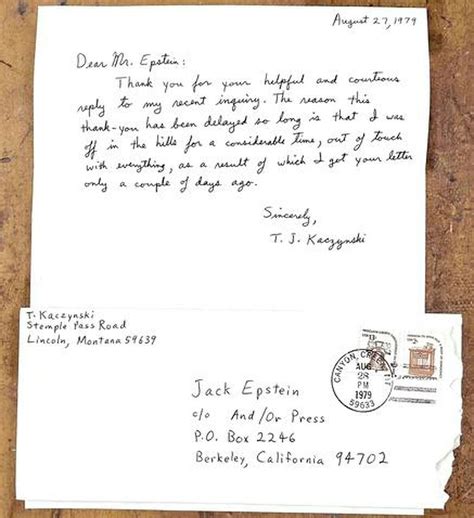 August 27, 1979
Dear Mr. Epstein:
Thank you for your helpful and courteous
reply to my recent inquiry. The reason this
thank-you has been delayed so long is that I was
off in the hills for a considerable time, out of touch
with everything, as a result of which I got your letter
only a couple of days ago.
Sincerely,
T. J. Kaczynski
T. Kaczynski
Stemple Pass Road
Lincoln, Montana 59639
CANYON CREEK MT
AUG
28
PM
1979
59633
Jack Epstein
c/o And/Or Press
P.O. Box 2246
Berkeley, California 94702